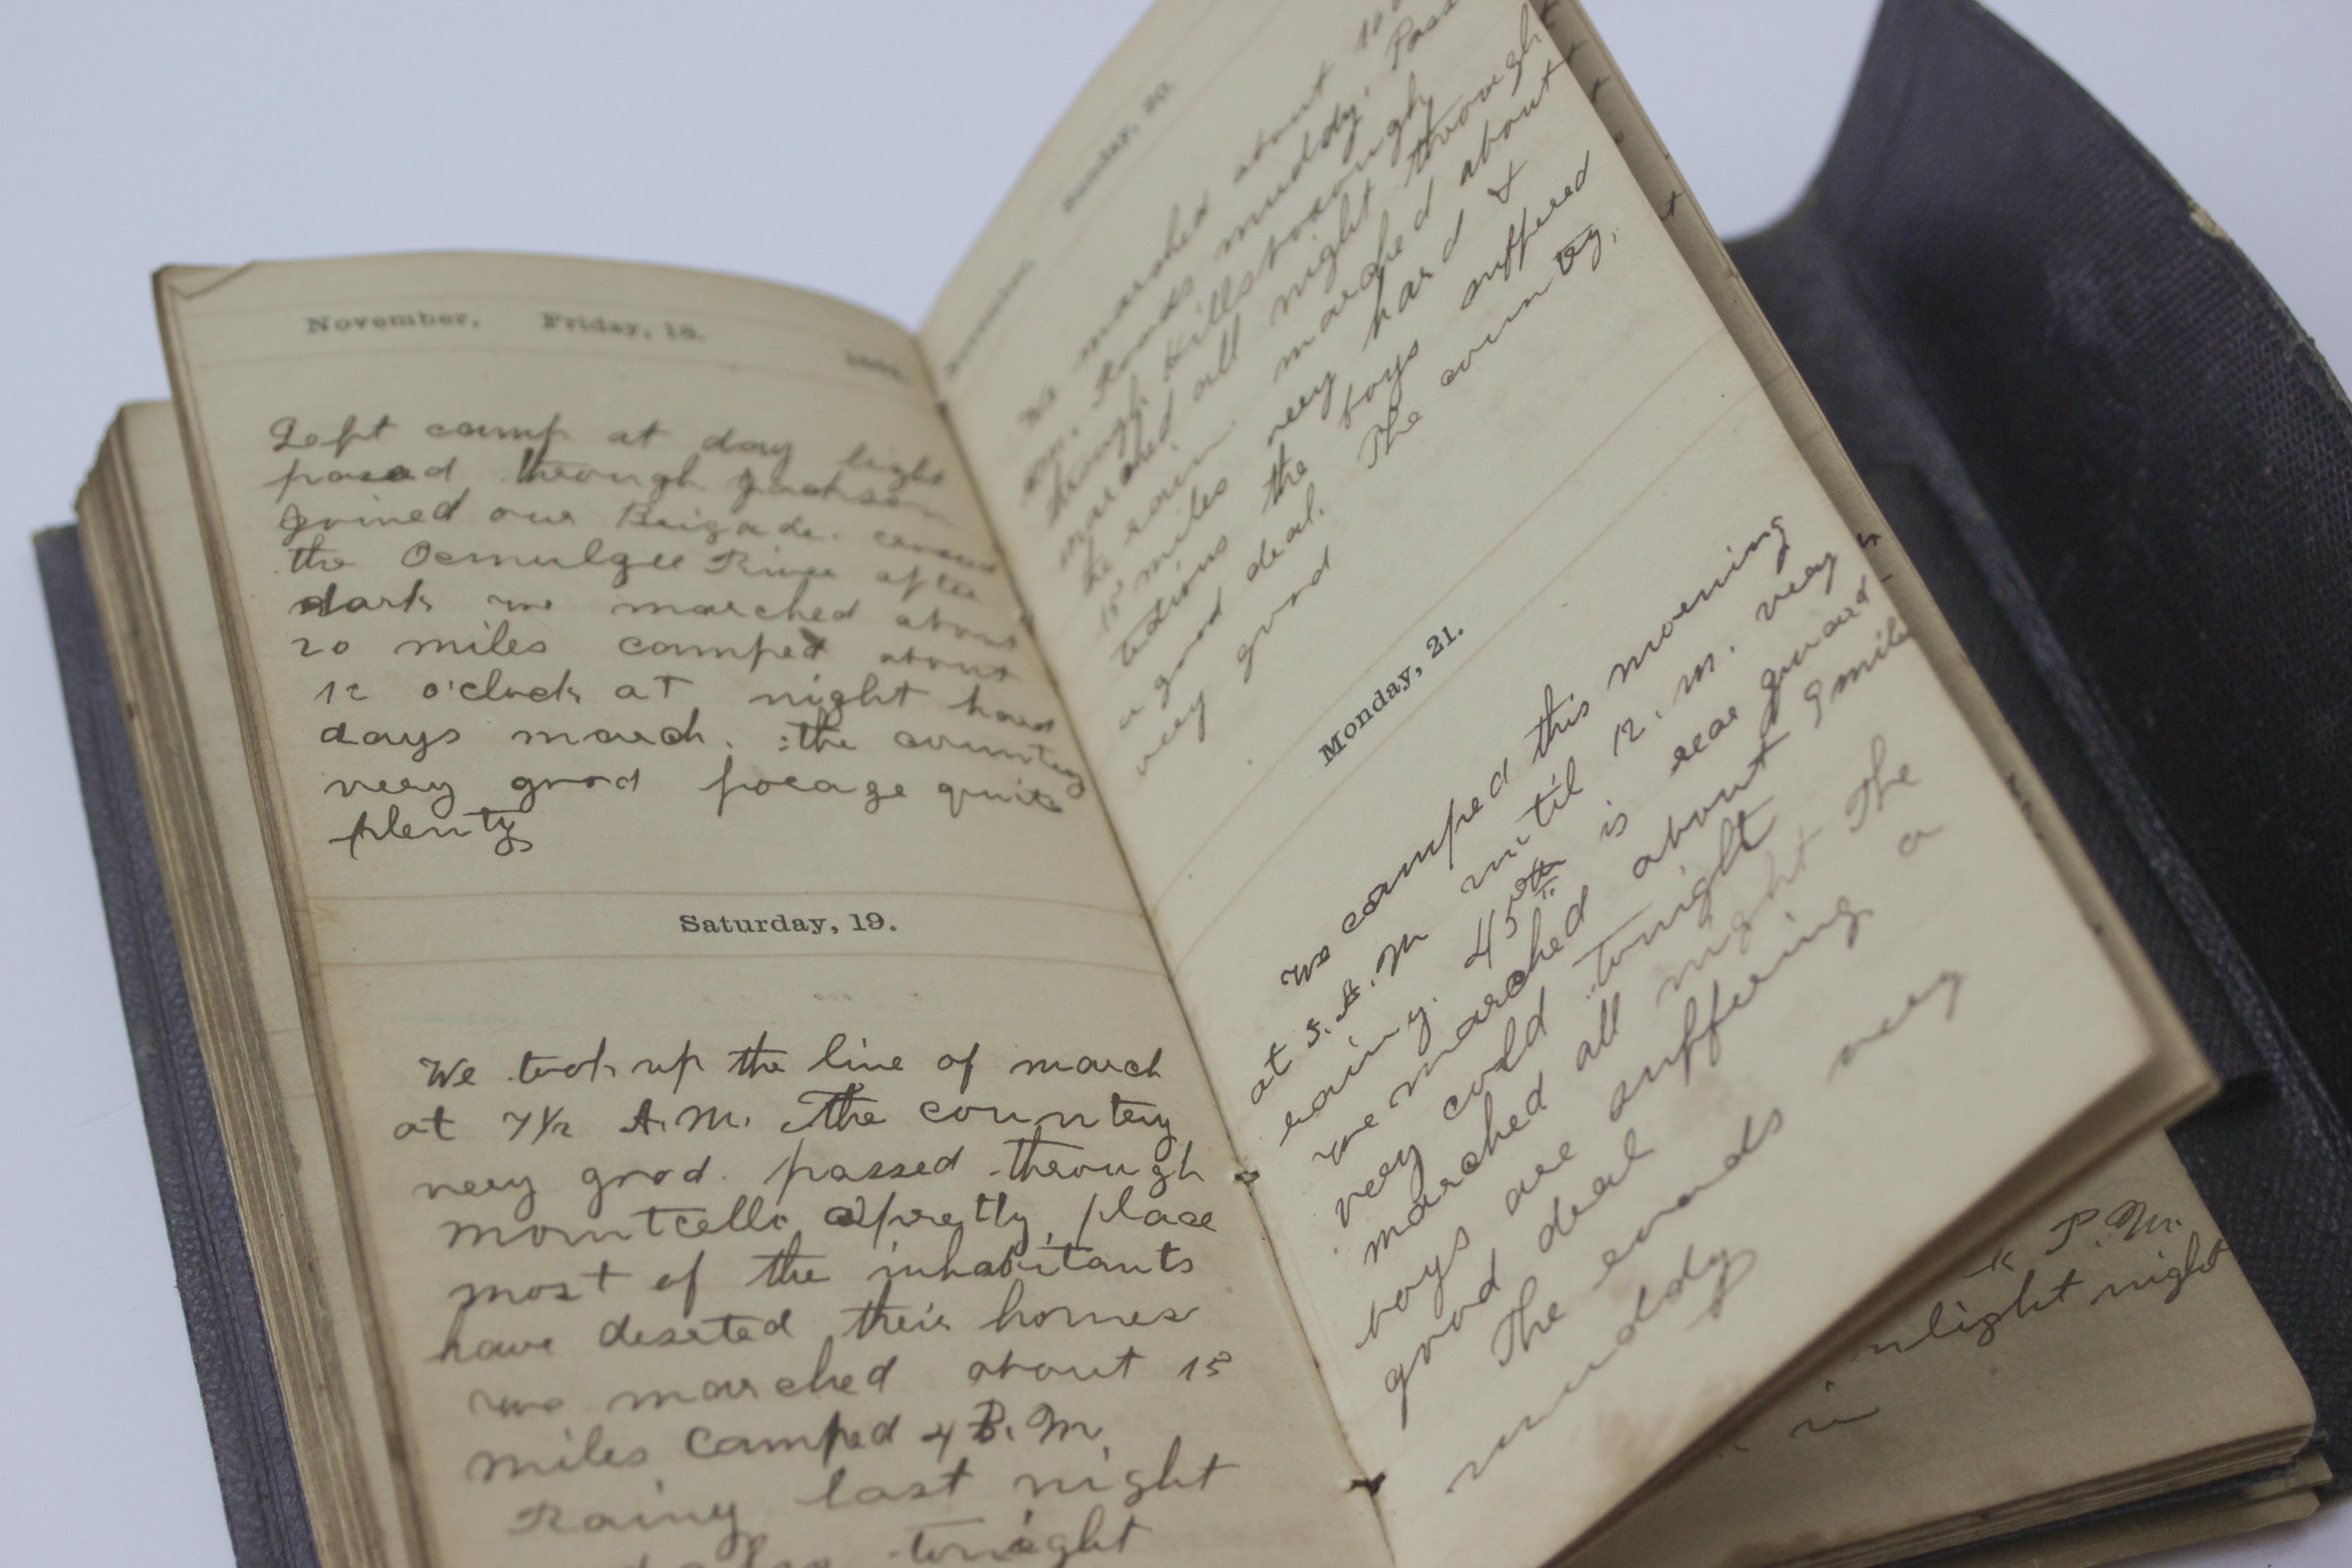 November, Friday, 18.
Left camp at day light
passed through Jackson
Joined our Brigade. crossed
the Ocmulgee River after
dark we marched about
20 miles camped about
12 o'clock at night hard
days march. the country
very good forage quite
plenty
Saturday, 19.
We took up the line of march
at 7 1/2 A.M. The country
very good. passed through
Monticello a pretty place
most of the inhabitants
have deserted their homes
we marched about 15
miles camped 4 P.M.
Rainy last night
tonight
November, Sunday, 20.
We marched about
am. Roads muddy. Pass
through Hillsborough
marched all night through
the rain marched about
15 miles very hard &
tedious the boys suffered
a good deal. The country,
very good
Monday, 21.
We camped this morning
at 5. A.M until 12. m. very
rainy. 45th is rear guard
we marched about 9 mile
very cold tonight
marched all night The
boys are suffering a
good deal
The roads very
muddy
P.M.
night
in